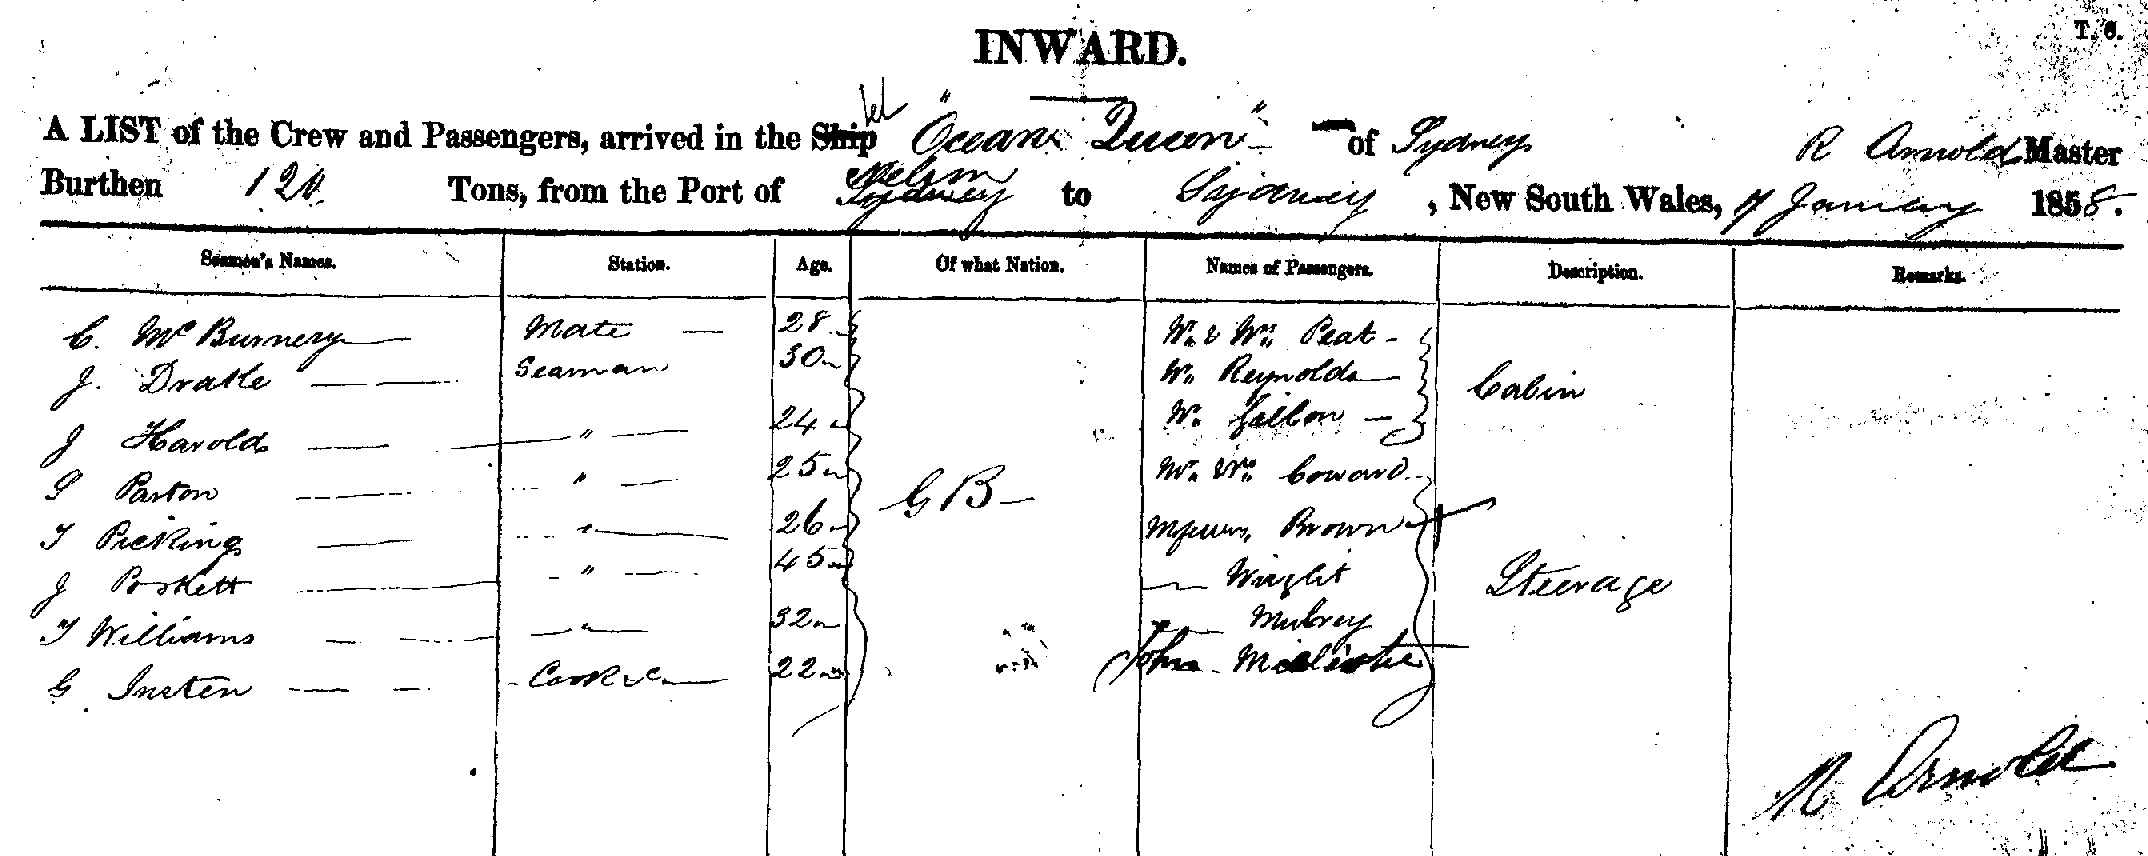 T. C.
INWARD.
A LIST of the Crew and Passengers, arrived in the Ship "Ocean Queen" of Sydney R Arnold Master
Burthen 120 Tons, from the Port of Sydney Nelson to Sydney, New South Wales, 7 January 1858.
Seamen's Names. Station. Age. Of what Nation. Names of Passengers. Description. Remarks.
C. McBurnery Mate 28 Mr. & Mrs. Peat
J. Drake Seaman 30 Mr. Reynolds Cabin
J Harold " 24 Mr. Fallon
S Parton " 25 G B Mr. Mrs. Coward
T Picking " 26 Messrs. Brown
J Poskett " 45 Wright Steerage
T Williams " 32 Mulrey
G Insten Cook 22 John
R Arnold